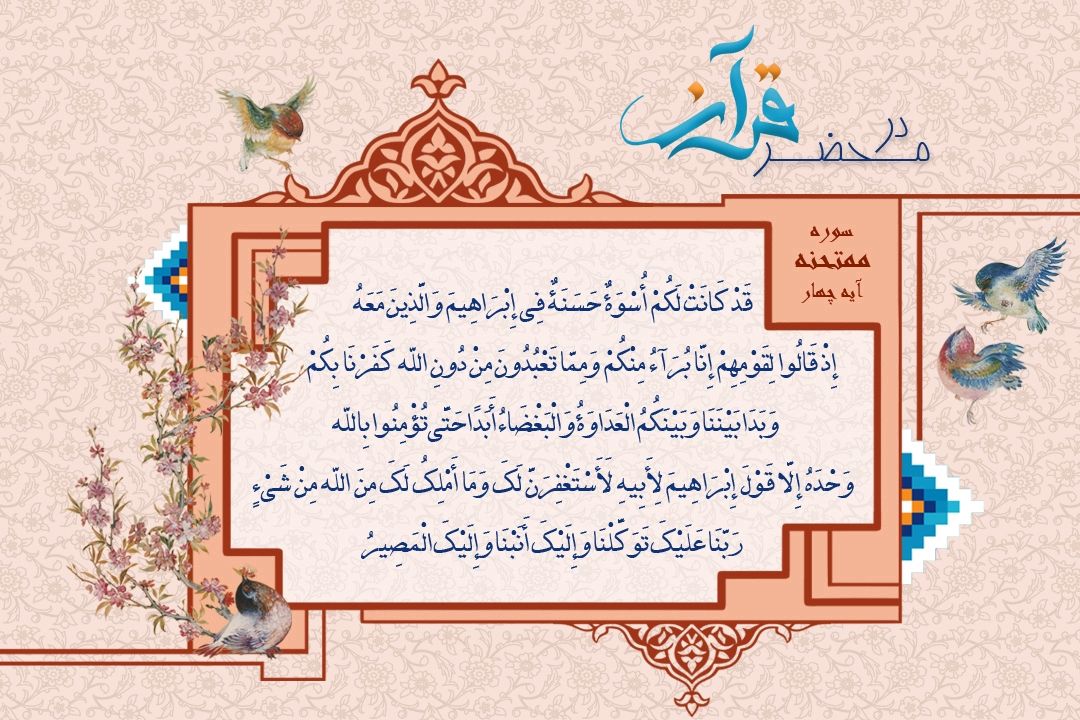 در محضر قرآن
سوره
ممتحنه
آیه چهار
قَدْ كَانَتْ لَكُمْ أُسْوَةٌ حَسَنَةٌ فِی إِبْرَاهِیمَ وَالَّذِینَ مَعَهُ
إِذْ قَالُوا لِقَوْمِهِمْ إِنَّا بُرَآءُ مِنْكُمْ وَمِمَّا تَعْبُدُونَ مِنْ دُونِ اللّه كَفَرْنَا بِكُمْ
وَبَدَا بَیْنَنَا وَبَیْنَكُمُ الْعَدَاوَةُ وَالْبَغْضَاءُ أَبَدًا حَتَّى تُؤْمِنُوا بِاللّه
وَحْدَهُ إِلّا قَوْلَ إِبْرَاهِیمَ لِأَبِیهِ لَأَسْتَغْفِرَنَّ لَکَ وَمَا أَمْلِکُ لَکَ مِنَ اللّه مِنْ شَیْءٍ
رَبَّنَا عَلَیْکَ تَوَكَّلْنَا وَإِلَیْکَ أَنَبْنَا وَإِلَیْکَ الْمَصِیرُ